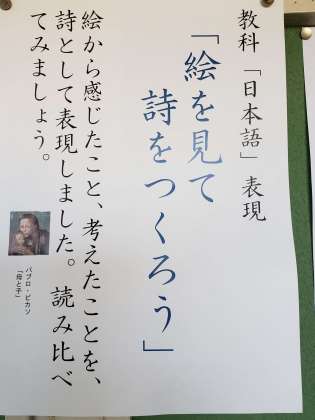 教科「日本語」表現
「絵を見て
詩をつくろう」
絵から感じたこと、考えたことを、
詩として表現しました。読み比べ
てみましょう。
パブロ・ピカソ
「母と子」